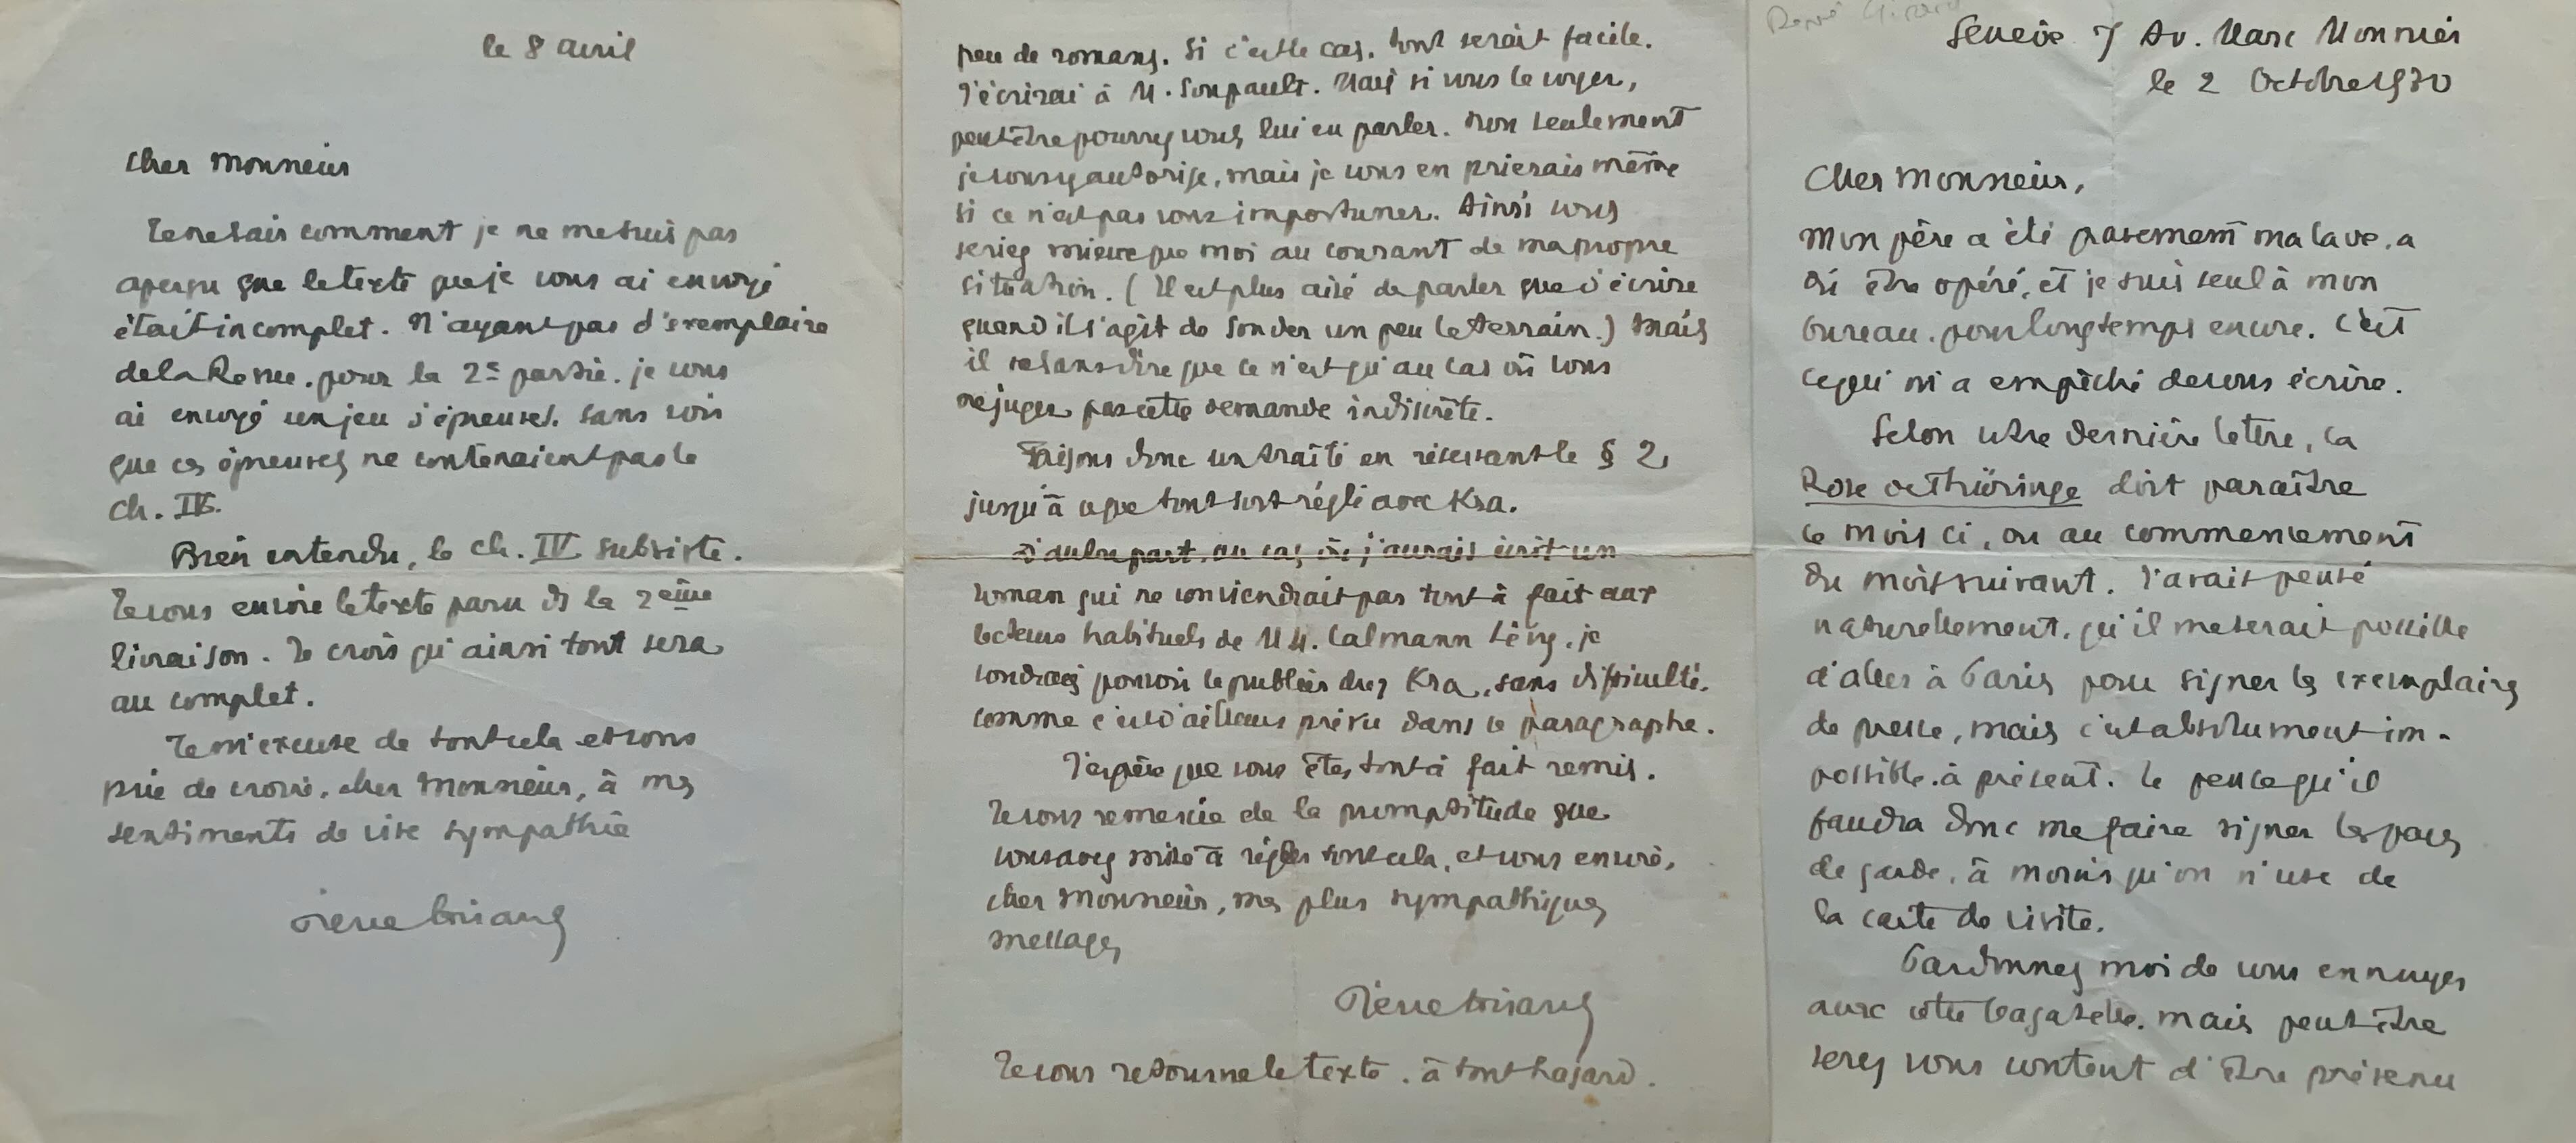 le 8 avril
Cher Monsieur
Je ne sais comment je ne me suis pas
aperçu que le texte que je vous ai envoyé
était incomplet. N'ayant pas d'exemplaire
de la Revue, pour la 2e partie, je vous
ai envoyé un jeu d'épreuves, sans voir
que ces épreuves ne contenaient pas le
ch. IV.
Bien entendu, le ch. IV subsiste.
Je vous envoie le texte paru ds la 2ème
livraison. Je crois qu'ainsi tout sera
au complet.
Je m'excuse de tout cela et vous
prie de croire, cher Monsieur, à mes
sentiments de vive sympathie
peu de romans. Si c'est le cas, tout serait facile.
J'écrirai à M. Soupault. Mais si vous le voyez,
peut être pourrez vous lui en parler. Non seulement
je vous y autorise, mais je vous en prierais même
si ce n'est pas vous importuner. Ainsi vous
seriez mieux que moi au courant de ma propre
situation. (Il est plus aisé de parler que d'écrire
quand il s'agit de sonder un peu le terrain.) Mais
il va sans dire que ce n'est qu'au cas où vous
ne jugez pas cette demande indiscrète.
Faisons donc un traité en réservant le § 2,
jusqu'à ce que tout soit réglé avec Kra.
D'autre part, au cas où j'aurais écrit un
roman qui ne conviendrait pas tout à fait aux
lecteurs habituels de MM. Calmann Lévy, je
voudrais pouvoir le publier chez Kra, sans difficulté,
comme c'est d'ailleurs prévu dans le paragraphe.
J'espère que vous êtes tout à fait remis.
Je vous remercie de la promptitude que
vous avez mise à régler tout cela, et vous envoie,
cher Monsieur, mes plus sympathiques
messages
Je vous retourne le texte, à tout hasard.
René Girard
Genève 7 Av. Marc Monnier
le 2 Octobre 1930
Cher Monsieur,
Mon père a été gravement malade, a
dû être opéré, et je suis seul à mon
bureau, pour longtemps encore. C'est
ce qui m'a empêché de vous écrire.
Selon votre dernière lettre, la
Rose de Thüringe doit paraître
ce mois ci, ou au commencement
du mois suivant. J'avais pensé
naturellement, qu'il me serait possible
d'aller à Paris pour signer les exemplaires
de presse, mais c'est absolument im-
possible à présent. Je pense qu'il
faudra donc me faire signer les pages
de garde, à moins qu'on n'use de
la carte de visite.
Pardonnez moi de vous ennuyer
avec cette bagatelle, mais peut être
serez vous content d'être prévenu